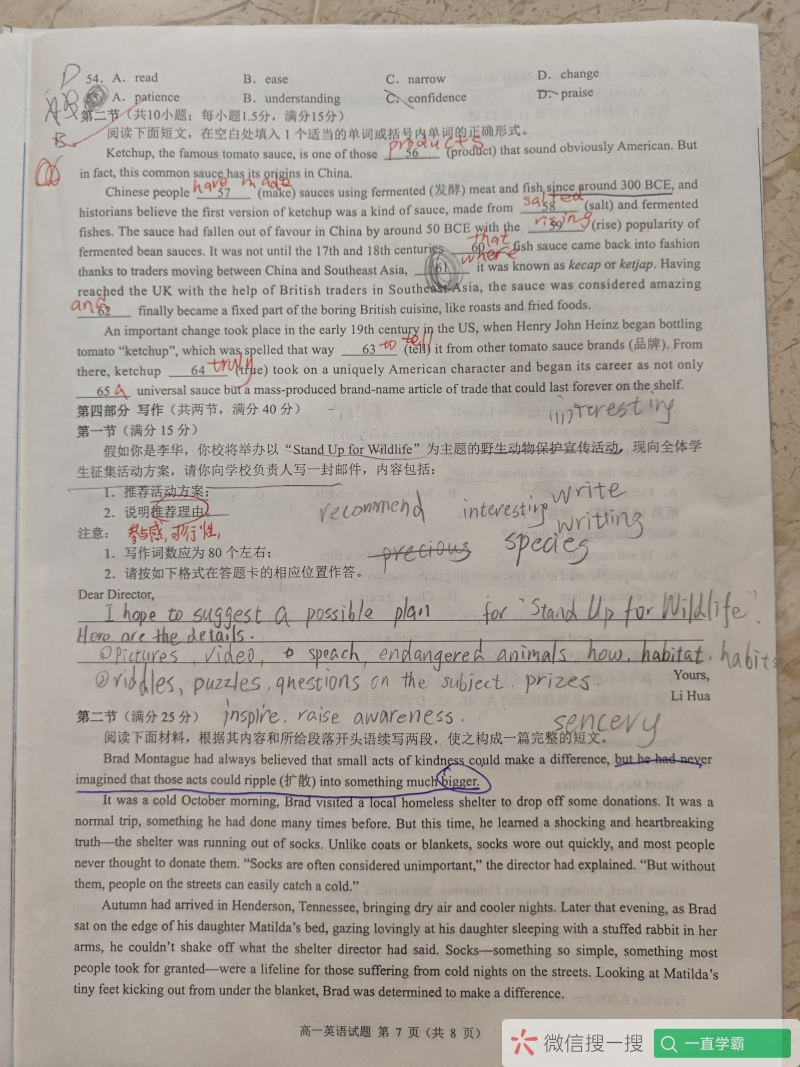 D 54. A. read B. ease C. narrow D. change
A. patience B. understanding C. confidence D. praise
第二节（共10小题；每小题1.5分，满分15分）
B.
阅读下面短文，在空白处填入 1 个适当的单词或括号内单词的正确形式。
products
Ketchup, the famous tomato sauce, is one of those 56 (product) that sound obviously American. But
in fact, this common sauce has its origins in China.
have made
Chinese people 57 (make) sauces using fermented (发酵) meat and fish since around 300 BCE, and
salted
historians believe the first version of ketchup was a kind of sauce, made from 58 (salt) and fermented
rising
fishes. The sauce had fallen out of favour in China by around 50 BCE with the 59 (rise) popularity of
that
fermented bean sauces. It was not until the 17th and 18th centuries 60 fish sauce came back into fashion
where
thanks to traders moving between China and Southeast Asia, 61 it was known as kecap or ketjap. Having
reached the UK with the help of British traders in Southeast Asia, the sauce was considered amazing
and
62 finally became a fixed part of the boring British cuisine, like roasts and fried foods.
An important change took place in the early 19th century in the US, when Henry John Heinz began bottling
to tell
tomato “ketchup”, which was spelled that way 63 (tell) it from other tomato sauce brands (品牌). From
truly
there, ketchup 64 (true) took on a uniquely American character and began its career as not only
65 a universal sauce but a mass-produced brand-name article of trade that could last forever on the shelf.
第四部分 写作（共两节，满分 40 分）
interesting
第一节（满分 15 分）
假如你是李华，你校将举办以“Stand Up for Wildlife”为主题的野生动物保护宣传活动，现向全体学
生征集活动方案，请你向学校负责人写一封邮件，内容包括：
1．推荐活动方案；
2．说明推荐理由。
recommend interesting write
writting
注意： 参与感，可行性，
1．写作词数应为 80 个左右；
precious species
2．请按如下格式在答题卡的相应位置作答。
Dear Director,
I hope to suggest a possible plan for “Stand Up for Wildlife”.
Here are the details.
①Pictures, video, speach, endangered animals, how, habitat. habits
②riddles, puzzles, questions on the subject. prizes.
Yours,
Li Hua
第二节（满分 25 分） inspire. raise awareness. sencery
阅读下面材料，根据其内容和所给段落开头语续写两段，使之构成一篇完整的短文。
Brad Montague had always believed that small acts of kindness could make a difference, but he had never
imagined that those acts could ripple (扩散) into something much bigger.
It was a cold October morning, Brad visited a local homeless shelter to drop off some donations. It was a
normal trip, something he had done many times before. But this time, he learned a shocking and heartbreaking
truth—the shelter was running out of socks. Unlike coats or blankets, socks wore out quickly, and most people
never thought to donate them. “Socks are often considered unimportant,” the director had explained. “But without
them, people on the streets can easily catch a cold.”
Autumn had arrived in Henderson, Tennessee, bringing dry air and cooler nights. Later that evening, as Brad
sat on the edge of his daughter Matilda’s bed, gazing lovingly at his daughter sleeping with a stuffed rabbit in her
arms, he couldn’t shake off what the shelter director had said. Socks—something so simple, something most
people took for granted—were a lifeline for those suffering from cold nights on the streets. Looking at Matilda’s
tiny feet kicking out from under the blanket, Brad was determined to make a difference.
高一英语试题 第 7 页（共 8 页）
微信搜一搜 一直学霸